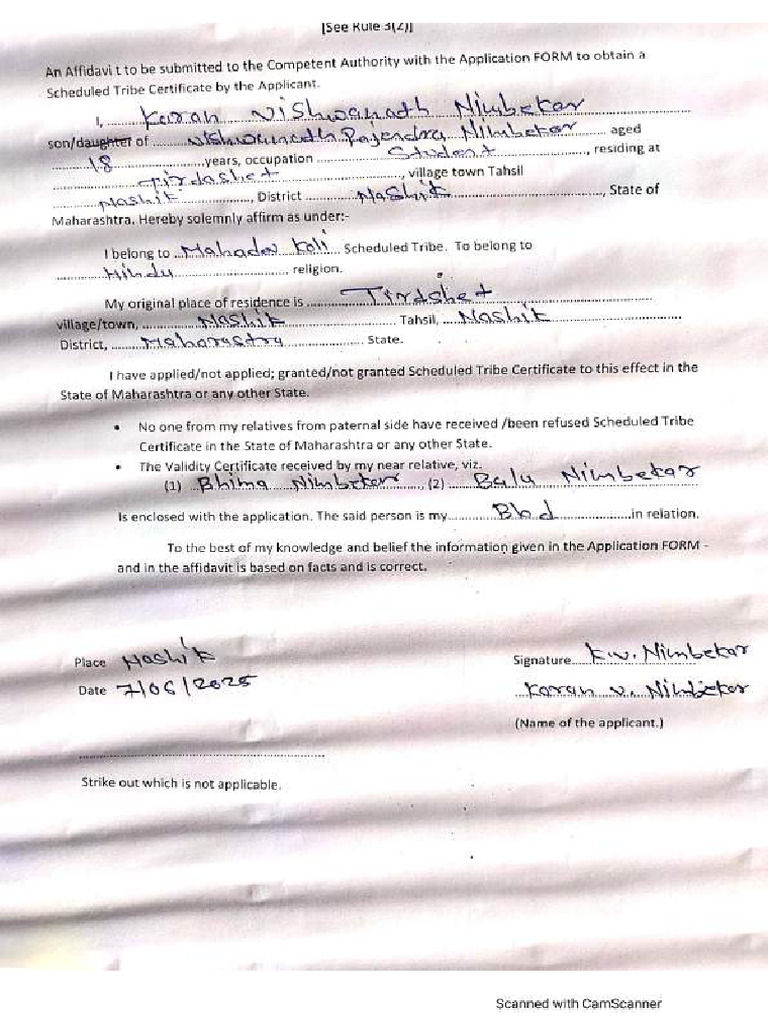 [See Rule 3(2)]
An Affidavi t to be submitted to the Competent Authority with the Application FORM to obtain a
Scheduled Tribe Certificate by the Applicant.
I, Karan Vishwanath Nimbekar
son/daughter of Vishwanath Rajendra Nimbekar aged
18 years, occupation Student, residing at
Tirdashet, village town Tahsil
Nashik, District Nashik, State of
Maharashtra. Hereby solemnly affirm as under:-
I belong to Mahadev Koli Scheduled Tribe. To belong to
Hindu religion.
My original place of residence is Tirdshet
village/town, Nashik Tahsil, Nashik
District, Maharastra State.
I have applied/not applied; granted/not granted Scheduled Tribe Certificate to this effect in the
State of Maharashtra or any other State.
• No one from my relatives from paternal side have received /been refused Scheduled Tribe
Certificate in the State of Maharashtra or any other State.
• The Validity Certificate received by my near relative, viz.
(1) Bhima Nimbekar, (2) Balu Nimbekar
Is enclosed with the application. The said person is my Blod in relation.
To the best of my knowledge and belief the information given in the Application FORM -
and in the affidavit is based on facts and is correct.
Place Nashik Signature K.V. Nimbekar
Date 7/06/2025 Karan V. Nimbekar
(Name of the applicant.)
Strike out which is not applicable.
Scanned with CamScanner